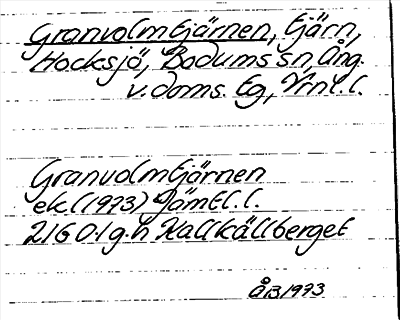 Granvolmtjärnen, tjärn,
Hocksjö, Bodums sn, Ång.
v.doms. tg, Vrnl.l.
Granvolmtjärnen
ek (1973) Jämtl.l.
21G 0-1 g-h Kallkällberget
ÅB 1973